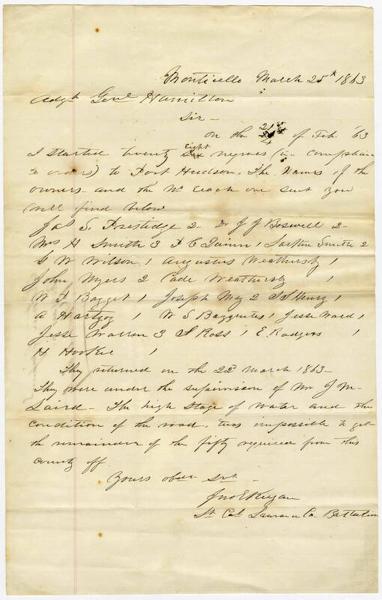 Monticello March 25th 1863
Adgt Genl Hamilton
Sir—
on the of Feb 63
I started twenty eight negroes (in compliance
to orders) to Port Hudson. The Names of the
owners and the No each one sent you
will find below
Jas S. Prestidge 2 Dr J J Boswell 2—
Mrs H Smith 3 F C Quinn 1 Larkin Smith 2
C W Wilson 1 Augustus Weathersby 1
John Myers 2 Cade Weathersby 1
W F Bagget 1 Joseph May 2 1
A Hartzog 1 W S 1 Jesse Ward 1
Jesse Warren 3 S Ross 1 E Rodgers 1
H 1
They returned on the 22d March 1863—
They were under the supervision of Mr J M
Laird— The high Stage of water and the
condition of the road, was impossible to get
the remainder of the fifty required from this
county off
Yours obdt Svt
Jno E
Lt Col Lawrence Co Battalion